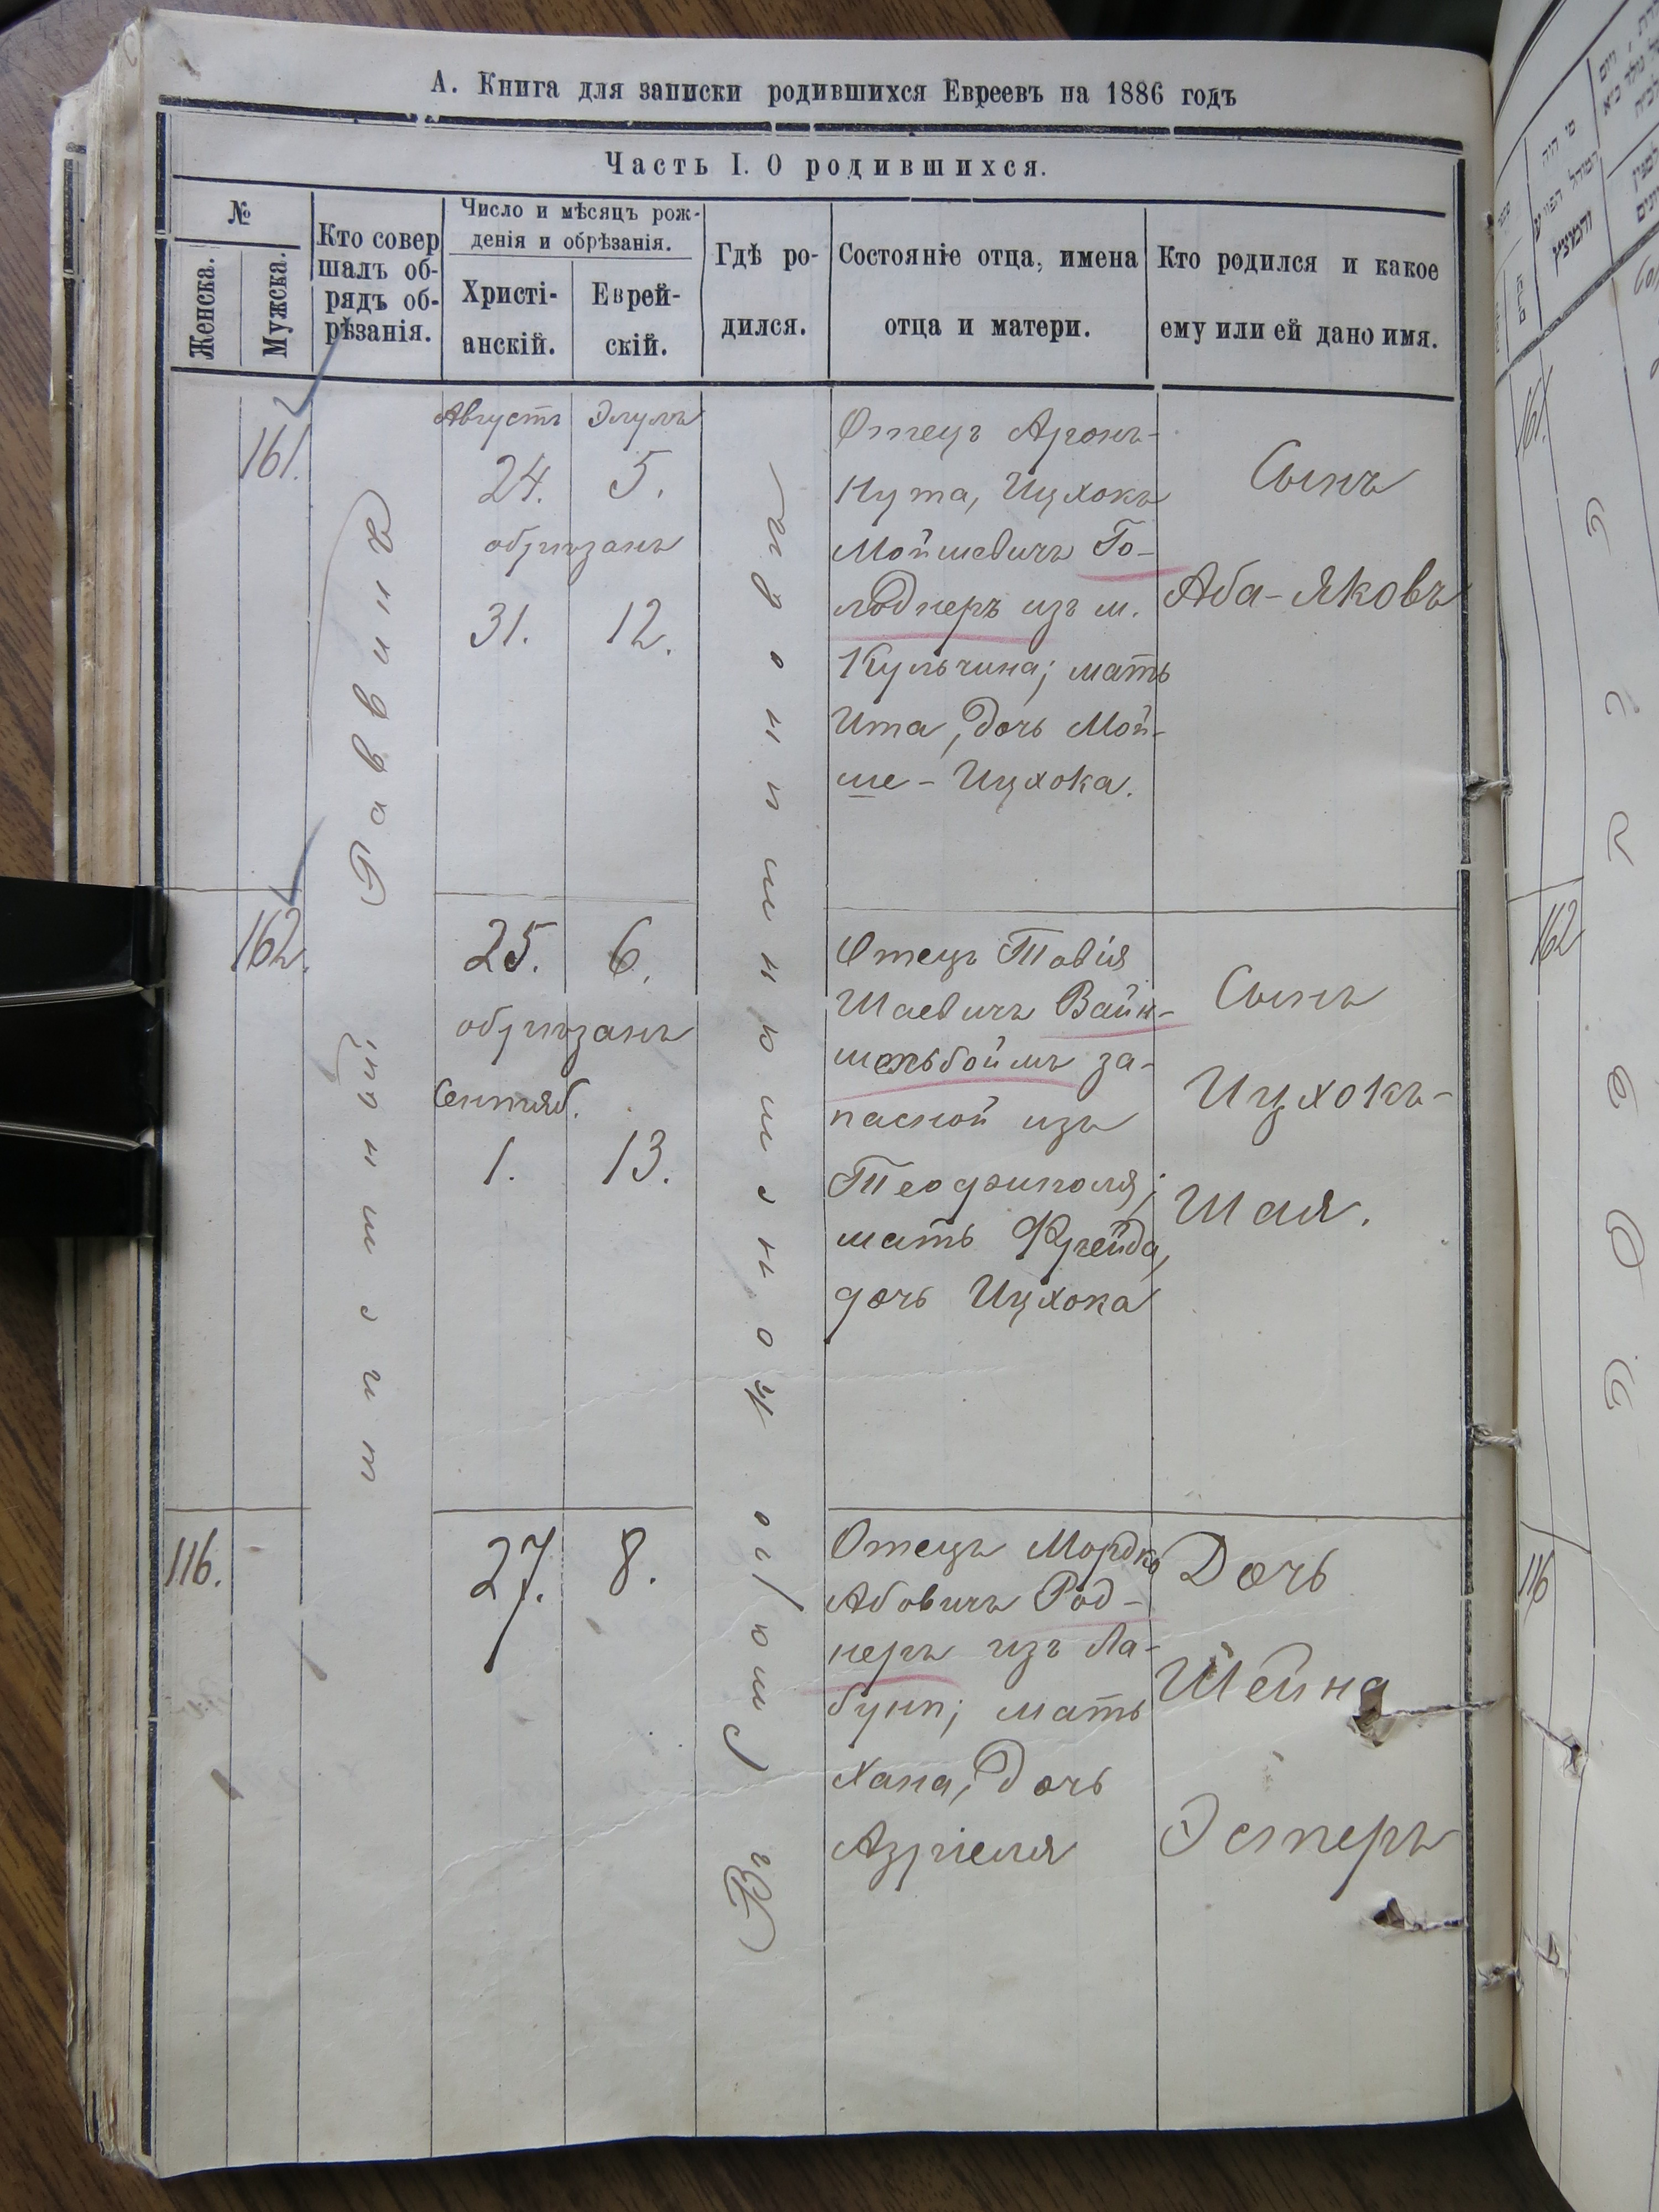 А. Книга для записки родившихся Евреевъ на 1886 годъ
Часть I. О родившихся.
№
Женска.
Мужска.
Кто совер
шалъ об-
рядъ об-
рѣзанія.
Число и мѣсяцъ рож-
денія и обрѣзанія.
Христі-
анскій.
Еврей-
скій.
Гдѣ ро-
дился.
Состояніе отца, имена
отца и матери.
Кто родился и какое
ему или ей дано имя.
161.
Августъ
Элулъ
24.
5.
обрѣзанъ
31.
12.
Отецъ Аронъ-
Нута, Ицхокъ
Мойшевичъ Го-
лоднеръ изъ м.
Кульчина; мать
Ита, дочь Мой-
ше - Ицхока.
Сынъ
Аба - Яковъ
162.
25.
6.
обрѣзанъ
Сентяб.
1.
13.
Отецъ Товія
Шаевичъ Вайн-
шельбоймъ за-
пасной изъ
Теофиполя;
мать Фрейда,
дочь Ицхока
Сынъ
Ицхокъ-
Шая.
116.
27.
8.
Отецъ Мордко
Абовичъ Род-
неръ изъ Ла-
буни; мать
Хана, дочь
Азріеля
Дочь
Шейна
Эстеръ
161.
162
116